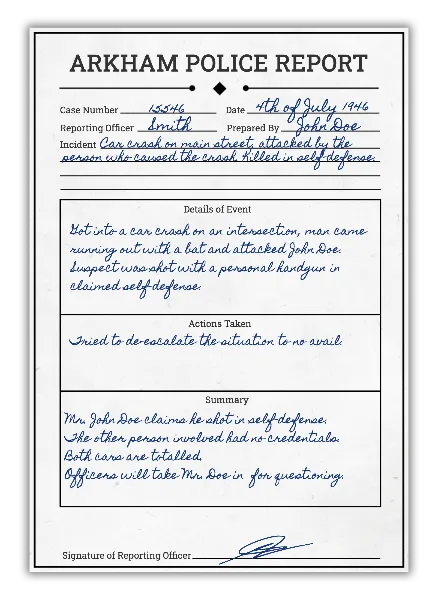 ARKHAM POLICE REPORT
Case Number 15546 Date 4th of July 1946
Reporting Officer Smith Prepared By John Doe
Incident Car crash on main street, attacked by the
person who caused the crash. Killed in self-defense.
Details of Event
Got into a car crash on an intersection, man came
running out with a bat and attacked John Doe.
Suspect was shot with a personal handgun in
claimed self-defense.
Actions Taken
Tried to de-escalate the situation to no avail.
Summary
Mr. John Doe claims he shot in self-defense.
The other person involved had no credentials.
Both cars are totalled.
Officers will take Mr. Doe in for questioning.
Signature of Reporting Officer